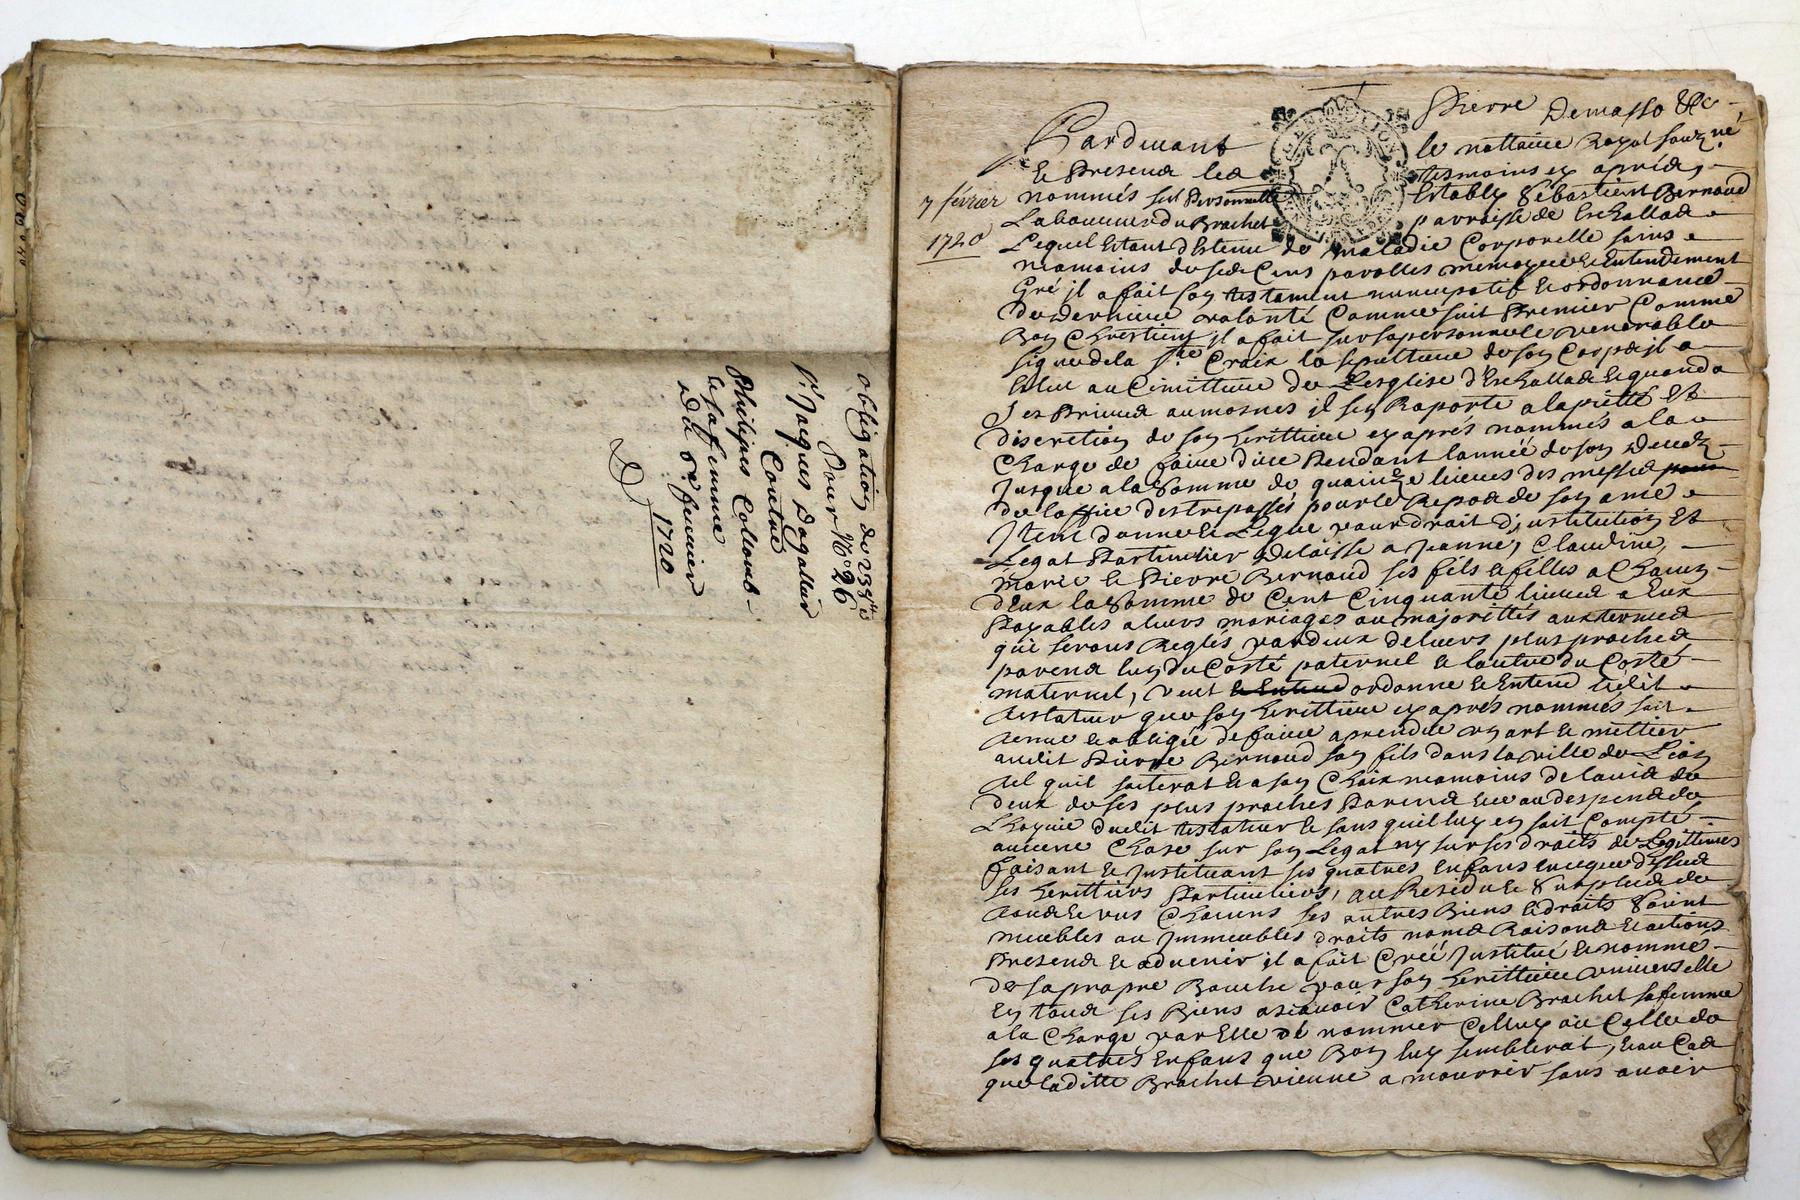 obligation de 233tt
Pour N° 26
Sr Jacques Dagallier
Contre
Philipes Collomb
et sa femme
Du 6e feuvrier
1720
Pierre Demasso &c
Pardevant le nottaire Royal souzné
Et Presend les tesmoins cy apriés
7 février
1720
nommés fut Personnelle Establÿ Sebastient Bernoud
Laboureur du Brachet parroisse de Leschallade
Lequel Estant destenu de maladie Corporelle sains
neamoins de ses Cens parolles memoyre Et Entendement
Gré il a fait son testament nuncupatif Et ordonnance
de derniere volonté Comme suit Premier Comme
Bon Chrestient il a fait sur sa personne le venerable
signe de la Ste Croix la sepulture de son Corps il a
Eslut au Cimittiere de Lesglise d'Eschallade Et quand a
Ses Prieres aumosnes il sen Raporte a la pietté Et
discretion de son heritiere cy aprés nommés a la
Charge de faire dire Pendant lannée de son Deced
Jusque a la Somme de quainze livres des messes pour
de loffice des trepassés pour le Repos de son ame
Item donne Et Legue pour droit d'institution Et
Legat Particulier delaisse a Jeanne, Claudine,
marie Et Pierre Bernoud ses fils Et filles a Chacun
d'Eux la Somme de Cent Cinquante livres a Eux
Payables a leurs mariages ou majorittés aux termes
qui serons Reglés par deux de leurs plus proches
parens lun du Costé paternel Et lautre du Costé
maternel, veut Et Entend ordonne Et Entend ledit
testateur que son heritiere cy aprés nommés soit
tenue Et obligée de faire aprendre un art Et mettier
audit Pierre Bernoud son fils dans la ville de Lion
tel quil soiterat Et a son Choix neamoins de lavis de
deux de ses plus proches Parens Et ce au despend de
Lhoyrie dudit testateur Et sans quil luy en soit Compté
aucune Chose sur son Legat ny sur ses droits de Legittimes
faisant Et Instituant ses quatres Enfans
ses heritiers Particuliers, au Residu Et Surplus de
tous Et uns Chacuns ses autres Biens Et droits Soient
meubles ou Immeubles droits noms Raisons Et actions
Presend Et advenir il a fait Créé Institué Et nommé
de sa propre Bouche pour son heritiere universelle
En tous ses Biens asçavoir Catherine Brachet sa femme
a la Charge par Elle de nommer Celluy ou Celle de
ses quatres Enfans que Bon luy semblerat, Et au Cas
que laditte Brachet vienne a mourrir sans avoir